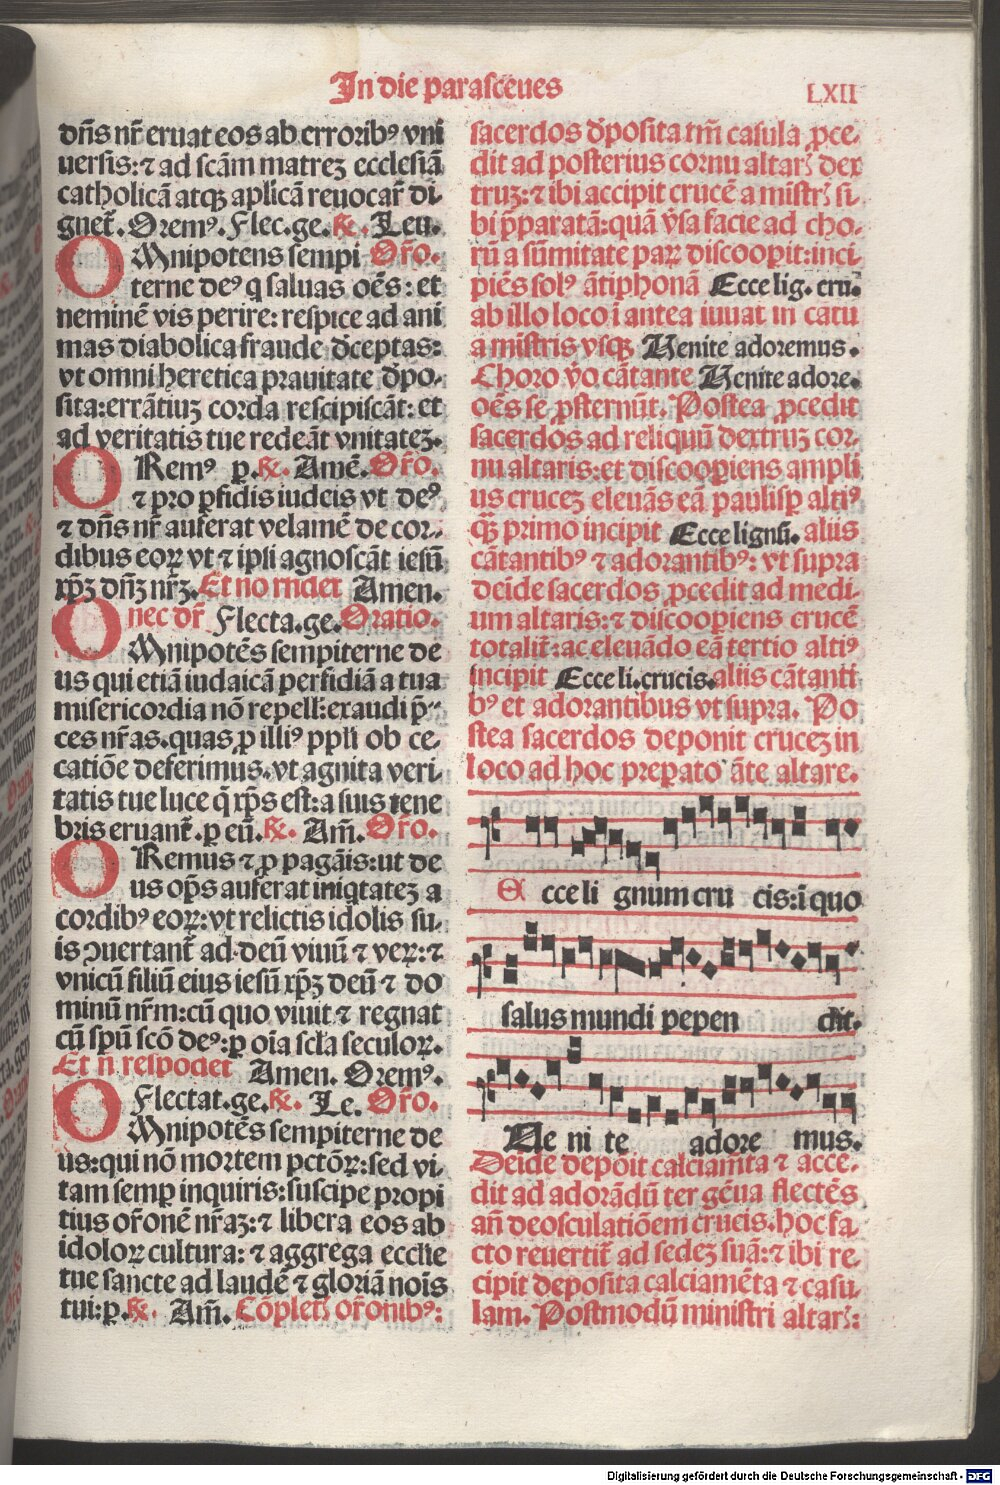 In die parasceues
LXII
dn̄s nr̄ eruat eos ab erroribꝰ vni
uersis: ⁊ ad scām matreꝫ ecclesiā
catholicā atqꝫ aplicā reuocar̄ di
gnet̄. Oremꝰ. Flec. ge. ℟. Leu.
OMnipotens sempi Or̄o.
terne deꝰ q saluas oēs: et
neminē vis perire: respice ad ani
mas diabolica fraude d̄ceptas:
vt omni heretica prauitate d̄po-
sita: errātiuꝫ corda rescipiscāt: et
ad veritatis tue redeāt vnitateꝫ.
ORemꝰ ꝑ. ℟. Amē. Or̄o.
⁊ pro ꝑfidis iudeis vt deꝰ
⁊ dn̄s nr̄ auferat velamē de cor-
dibus eoꝝ vt ⁊ ipsi agnoscāt iesū
xp̄ꝫ dn̄ꝫ nr̄ꝫ. Et no rn̄det Amen.
nec dr̄ Flecta. ge. Oratio.
OMnipotēs sempiterne de
us qui etiā iudaicā perfidiā a tua
misericordia nō repell: exaudi p̄-
ces nr̄as. quas ꝓ illiꝰ ppli ob ce-
catiōe deferimus. vt agnita veri-
tatis tue luce q̄ xp̄s est: a suis tene
bris eruant̄. ꝑ eū. ℟. Am̄. Or̄o.
ORemus ⁊ ꝓ pagāis: ut de
us op̄s auferat iniqtateꝫ a
cordibꝰ eoꝝ: vt relictis idolis su-
is ↄuertant̄ ad deū viuū ⁊ veꝝ: ⁊
vnicū filiū eius iesū xp̄ꝫ deū ⁊ do
minū nr̄m: cū quo viuit ⁊ regnat
cū spū scō deꝰ: ꝑ oīa scla seculoꝝ.
Et n̄ respōdet Amen. Oremꝰ.
Flectat. ge. ℟. Le. Or̄o.
OMnipotēs sempiterne de
us: qui nō mortem pctōꝝ: sed vi-
tam semꝑ inquiris: suscipe propi
tius or̄onē nr̄aꝫ: ⁊ libera eos ab
idoloꝝ cultura: ⁊ aggrega ecclie
tue sancte ad laudē ⁊ gloriā noīs
tui: ꝑ. ℟. Am̄. Cōplet̄ or̄onibꝰ:
sacerdos d̄posita tm̄ casula ꝓce-
dit ad posterius cornu altar̄ dex
truꝫ: ⁊ ibi accipit crucē a mīstr̄ si-
bi p̄paratā: quā v̄sa facie ad cho-
rū a sūmitate paꝝ discooꝑit: inci-
piēs solꝰ ātiphonā Ecce lig. cru.
ab illo loco ī antea iuuat in cātu
a mīstris vsqꝫ Venite adoremus.
Choro v̄o cātante Venite adore.
oēs se ꝓsternūt. Postea ꝓcedit
sacerdos ad reliquū dextruꝫ cor-
nu altaris: et discooꝑiens ampli
us cruceꝫ eleuās eā paulisꝑ altiꝰ
qꝫ̄ primo incipit Ecce lignū. aliis
cātantibꝰ ⁊ adorantibꝰ: vt supra
deīde sacerdos ꝓcedit ad medi-
um altaris: ⁊ discooꝑiens crucē
totalit̄: ac eleuādo eā tertio altiꝰ
incipit Ecce li. crucis. aliis cātanti
bꝰ et adorantibus vt supra. Po
stea sacerdos deponit cruceꝫ in
loco ad hoc preꝑato āte altare.
Ecce li gnum cru cis: ī quo
salus mundi pepen dit.
Ve ni te adore mus.
Deīde depōit calciam̄ta ⁊ acce-
dit ad adorādū ter gēua flectēs
an̄ deosculatiōem crucis. hoc fa-
cto reuertit̄ ad sedeꝫ suā: ⁊ ibi re-
cipit deposita calciamēta ⁊ casu-
lam. Postmodū ministri altar̄:
Digitalisierung gefördert durch die Deutsche Forschungsgemeinschaft - DFG